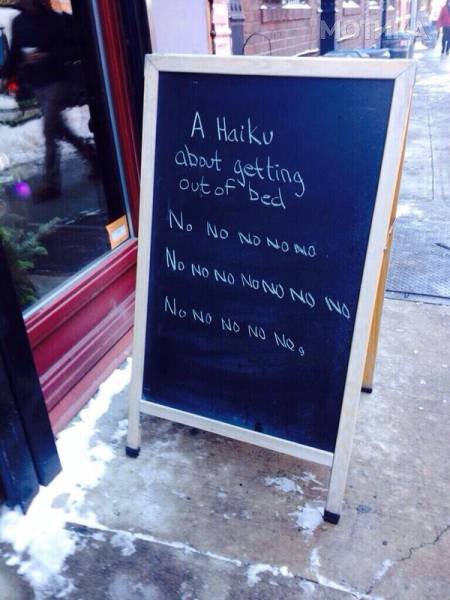 MOTHKA
A Haiku
about getting
out of bed
No No No No No
No No No No No No No
No No No No No.